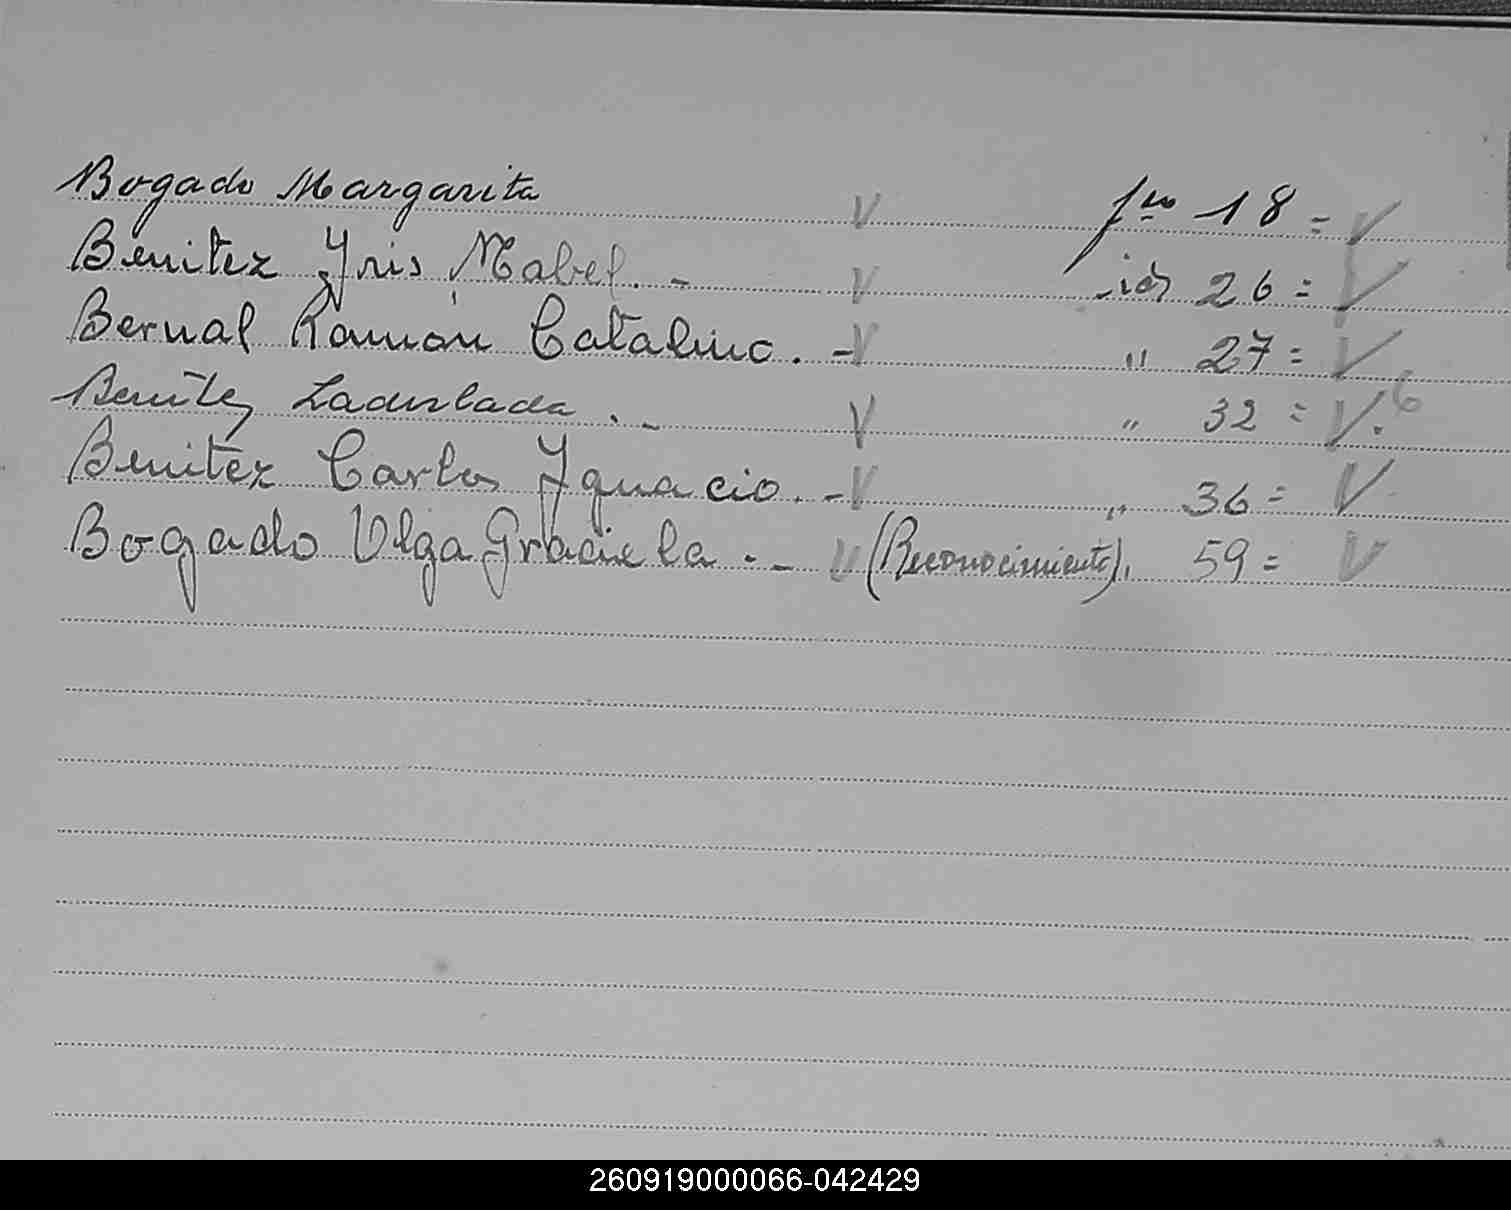 Bogado Margarita V fno 18 = V
Benitez Yris Mabel. - V id 26 = V
Bernal Ramón Catalino. - V " 27 = V
Benítez Ladislada . - V " 32 = V. 6
Benitez Carlos Ygnacio. - V " 36 = V
Bogado Olga Graciela . - V (Reconocimiento), 59 = V
260919000066-042429